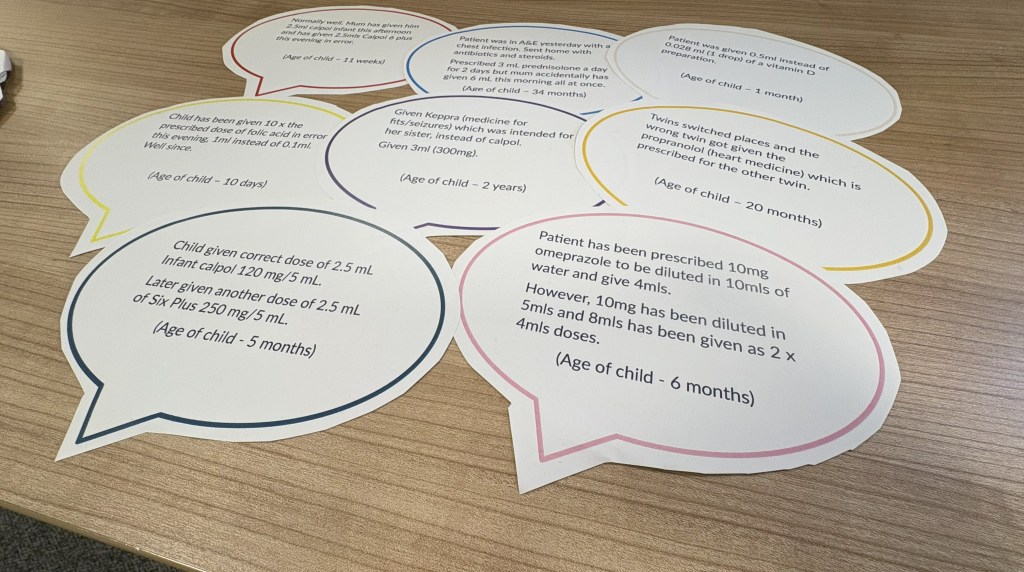 Normally well. Mum has given him
2.5ml calpol infant this afternoon
and has given 2.5mls Calpol 6 plus
this evening in error.
(Age of child – 11 weeks)
Patient was in A&E yesterday with a
chest infection. Sent home with
antibiotics and steroids.
Prescribed 3 mL prednisolone a day
for 2 days but mum accidentally has
given 6 mL this morning all at once.
(Age of child – 34 months)
Patient was given 0.5ml instead of
0.028 ml (1 drop) of a vitamin D
preparation.
(Age of child – 1 month)
Child has been given 10 x the
prescribed dose of folic acid in error
this evening. 1ml instead of 0.1ml.
Well since.
(Age of child – 10 days)
Given Keppra (medicine for
fits/seizures) which was intended for
her sister, instead of calpol.
Given 3ml (300mg).
(Age of child – 2 years)
Twins switched places and the
wrong twin got given the
propranolol (heart medicine) which is
prescribed for the other twin.
(Age of child – 20 months)
Child given correct dose of 2.5 mL
Infant calpol 120 mg/5 mL.
Later given another dose of 2.5 mL
of Six Plus 250 mg/5 mL.
(Age of child - 5 months)
Patient has been prescribed 10mg
omeprazole to be diluted in 10mls of
water and give 4mls.
However, 10mg has been diluted in
5mls and 8mls has been given as 2 x
4mls doses.
(Age of child - 6 months)